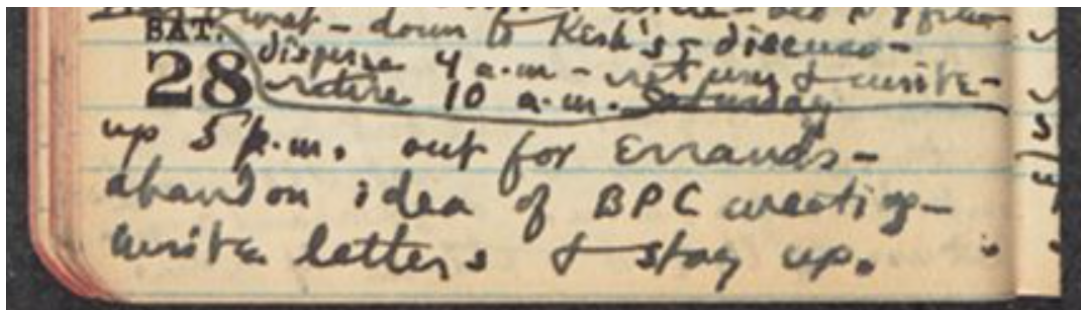 down to Kirk's - discuss -
SAT. disperse 4 a.m. - return & write -
28 retire 10 a.m. Saturday
up 5 p.m. out for errands -
abandon idea of BPC meeting -
write letters & stay up.